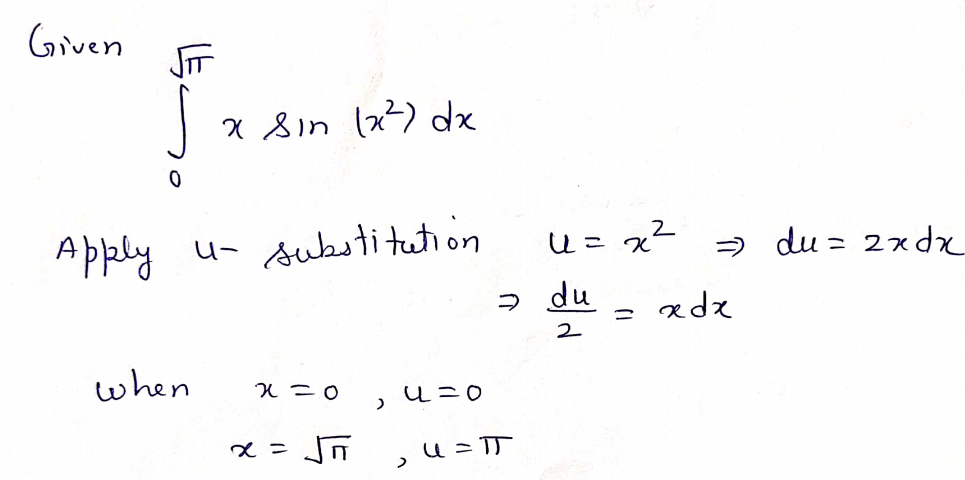 Given
∫₀^√π x sin (x²) dx
Apply u- substitution u = x² ⇒ du = 2x dx
⇒ du/2 = x dx
when x = 0 , u = 0
x = √π , u = π